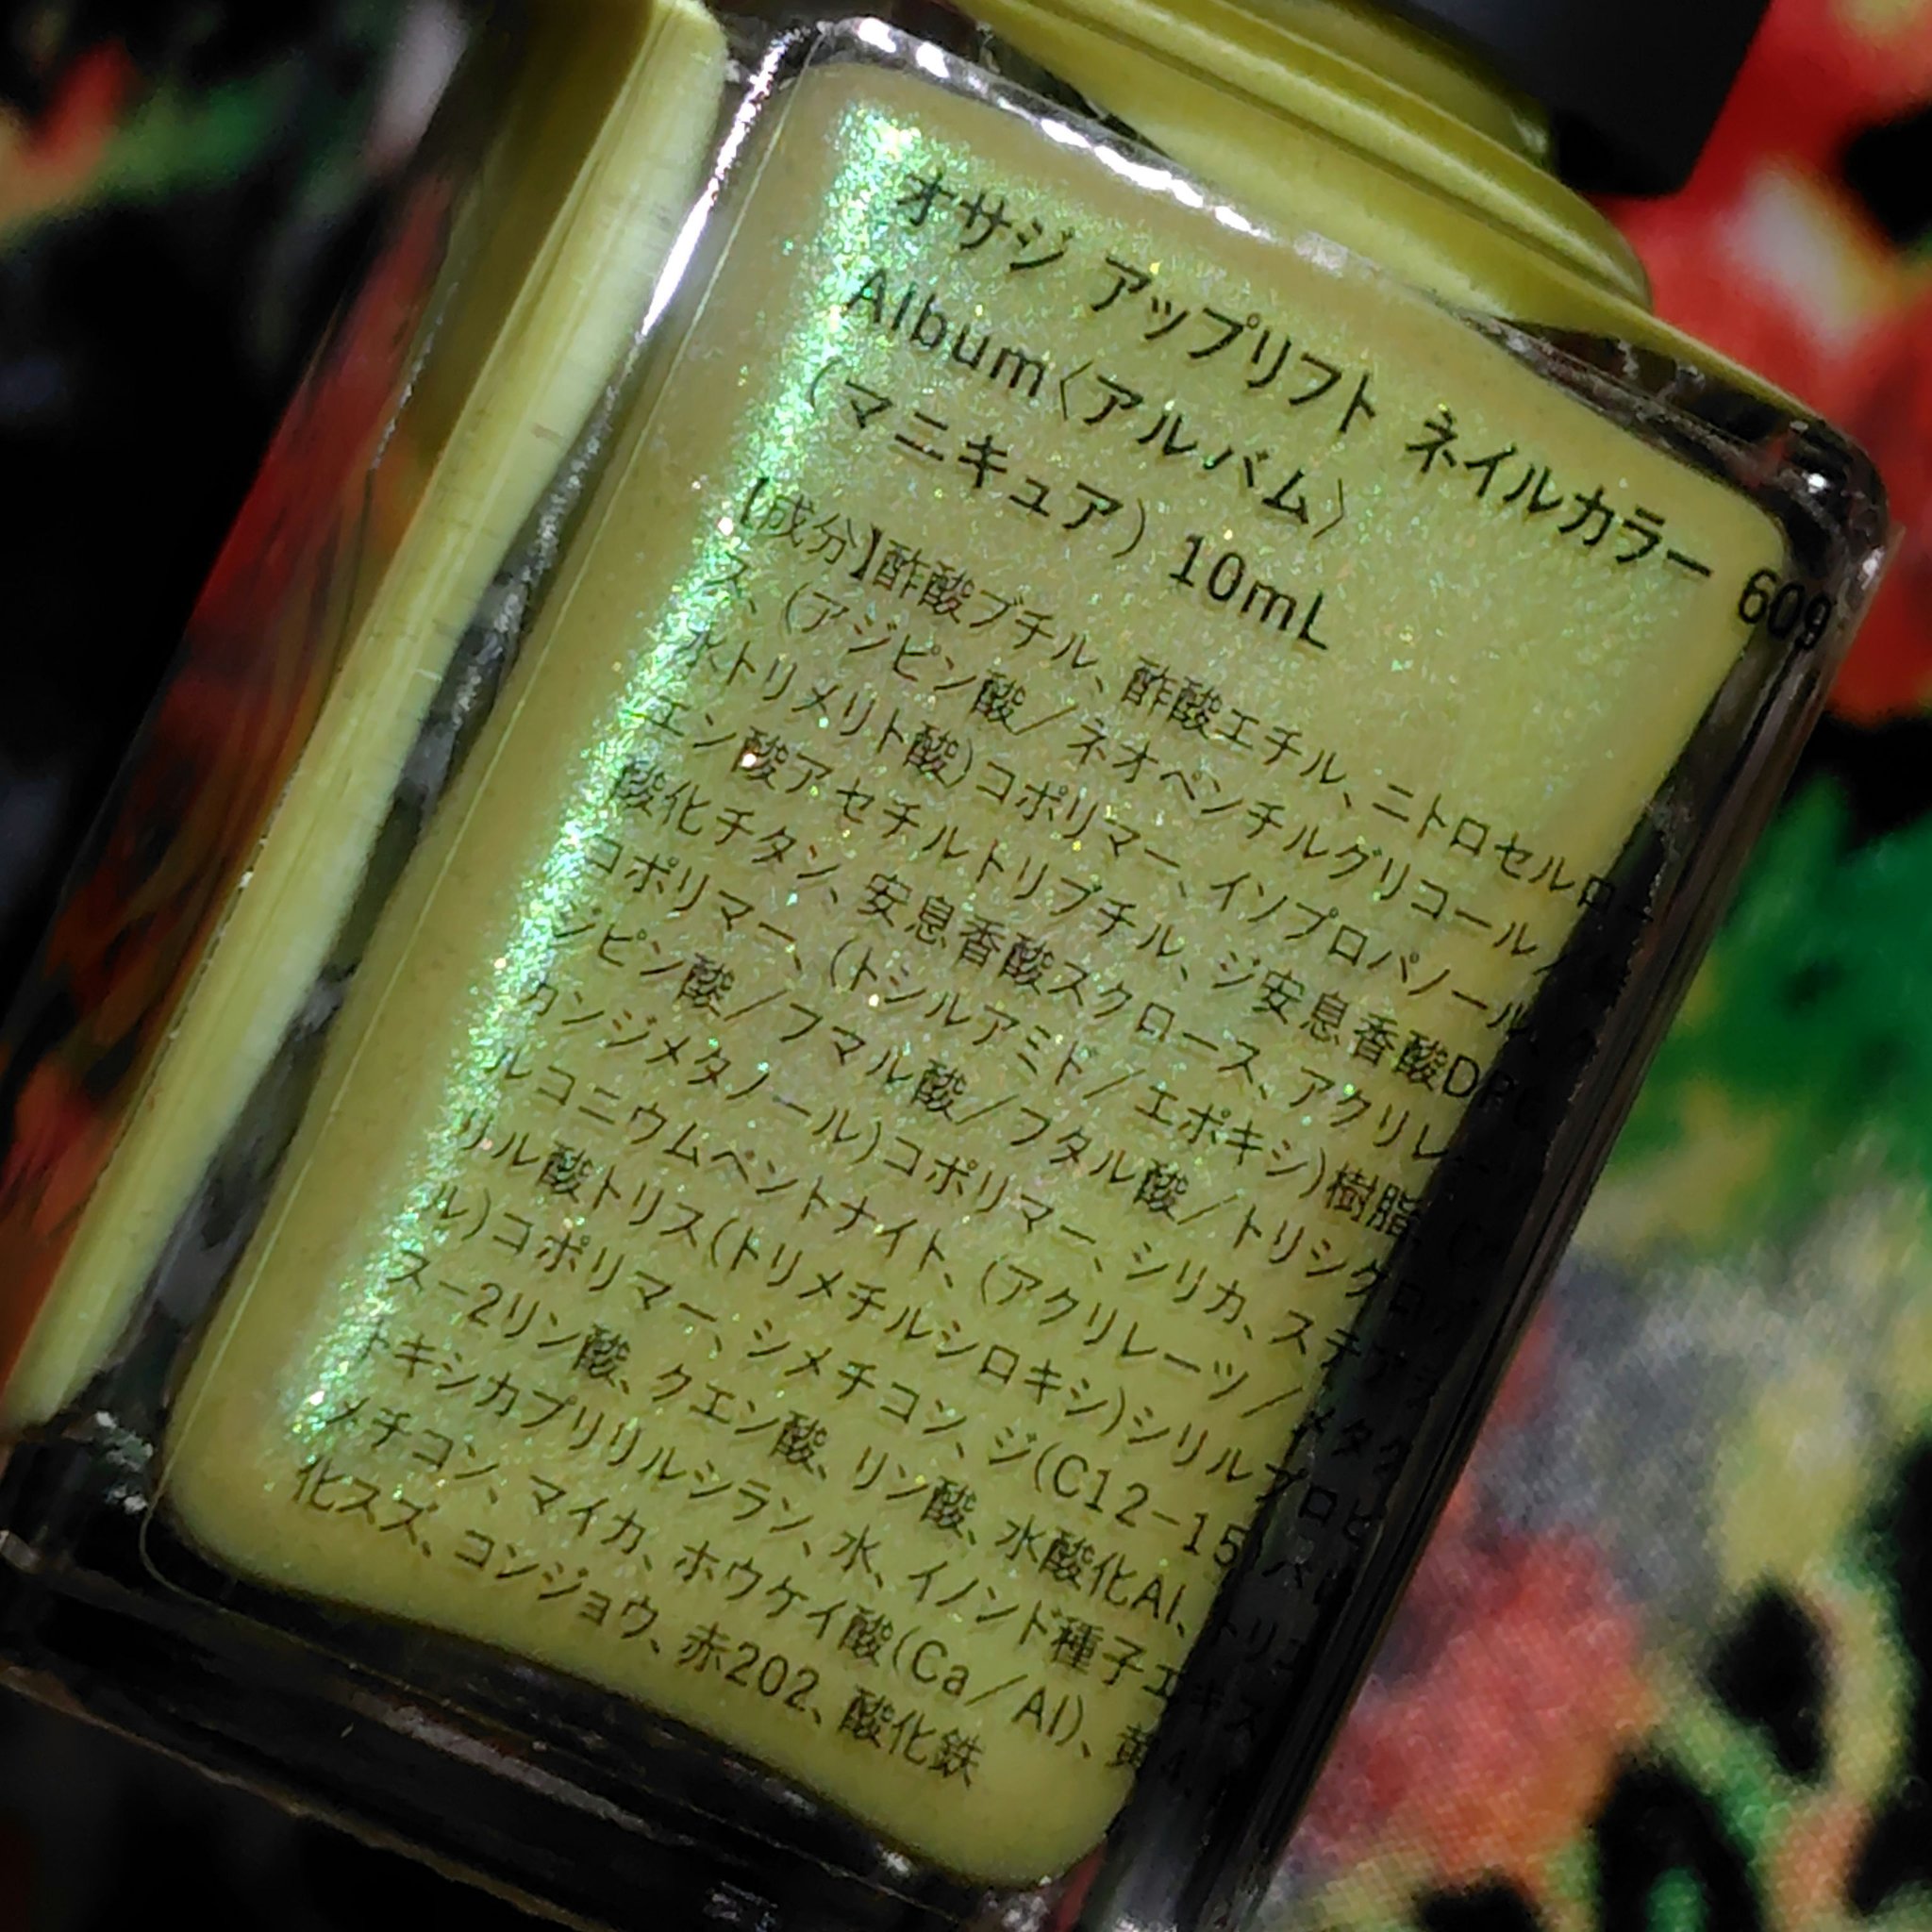 オサジ アップリフト ネイルカラー 609
Album〈アルバム〉
(マニキュア) 10mL
【成分】酢酸ブチル、酢酸エチル、ニトロセルロー
ス、(アジピン酸／ネオペンチルグリコール／
水トリメリト酸)コポリマー、イソプロパノール、
エン酸アセチルトリブチル、ジ安息香酸DPG
酸化チタン、安息香酸スクロース、アクリレー
コポリマー、(トシルアミド／エポキシ)樹脂、
ジピン酸／フマル酸／フタル酸／トリシクロ
カンジメタノール)コポリマー、シリカ、ステアラ
ルコニウムベントナイト、(アクリレーツ／メタク
リル酸トリス(トリメチルシロキシ)シリルプロピ
ル)コポリマー、ジメチコン、ジ(C12-15)パレ
ス-2リン酸、クエン酸、リン酸、水酸化Al、トリエ
トキシカプリリルシラン、水、イノンド種子エキス
メチコン、マイカ、ホウケイ酸(Ca／Al)、黄4、
化スズ、コンジョウ、赤202、酸化鉄